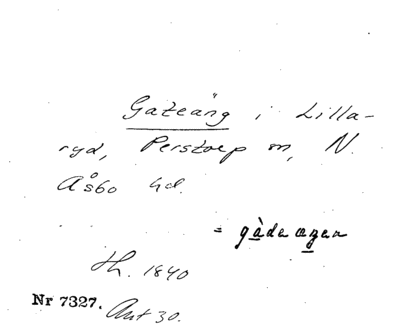 Gateäng i Lilla-
ryd, Perstorp sn, N.
Åsbo hd.
= gàde ægen
Lh. 1840
Nr 7327. Ant 30.